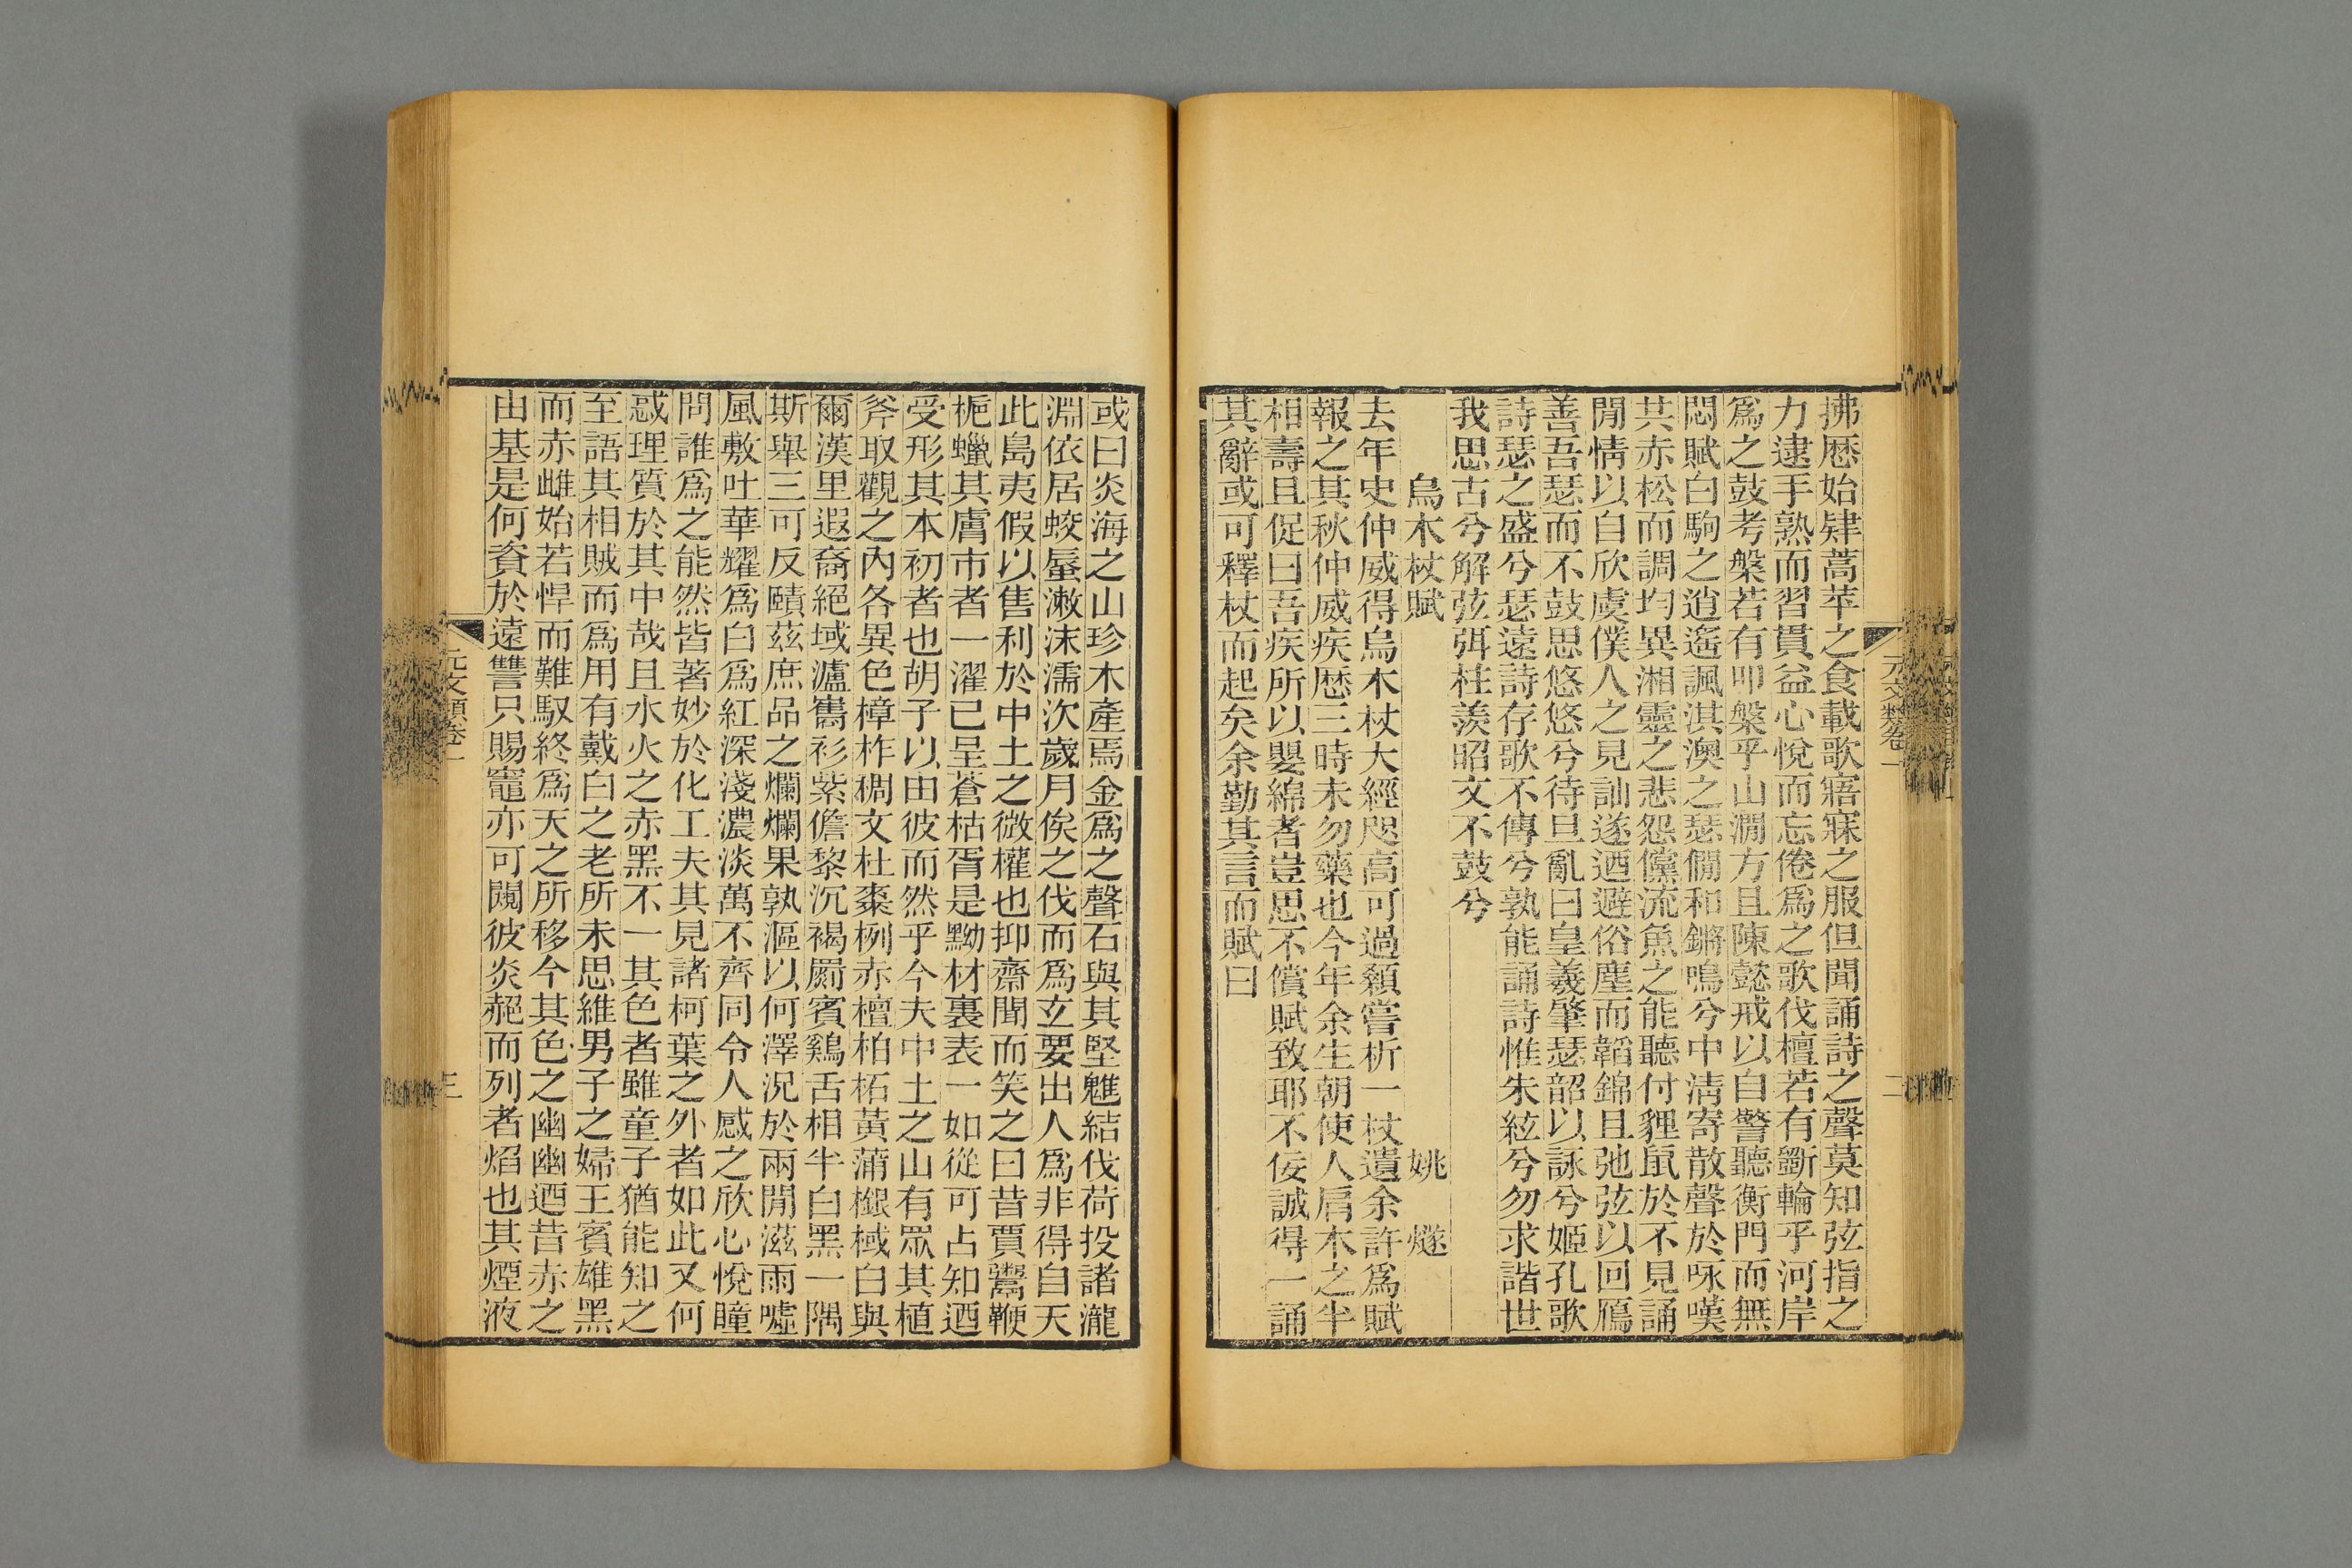 拂厯始肄蒿苹之食載歌寤寐之服但聞誦詩之聲莫知弦指之
力逮手熟而習貫益心悅而忘倦爲之歌伐檀若有斲輪乎河岸
爲之鼓考槃若有叩槃乎山澗方且陳懿戒以自警聽衡門而無
悶賦白駒之逍遙諷淇澳之瑟僩和鏘鳴兮中淸寄散聲於咏嘆
共赤松而調均異湘靈之悲怨儻流魚之能聽付貍鼠於不見誦
閒情以自欣虞僕人之見訕遂迺避俗塵而韜錦且弛弦以回鴈
善吾瑟而不鼓思悠悠兮待旦亂曰皇羲肇瑟韶以詠兮姬孔歌
詩瑟之盛兮瑟遠詩存歌不傳兮孰能誦詩惟朱絃兮勿求諧世
我思古兮解弦弭柱羨昭文不鼓兮
烏木杖賦 姚 燧
去年史仲威得烏木杖大經咫高可過顙嘗析一杖遺余許爲賦
報之其秋仲威疾厯三時未勿藥也今年余生朝使人肩木之半
相壽且促曰吾疾所以嬰綿者豈思不償賦致耶不佞誠得一誦
其辭或可釋杖而起矣余勤其言而賦曰
元文類卷一
二
或曰炎海之山珍木產焉金爲之聲石與其堅魋結伐荷投諸瀧
淵依居蛟蜃漱沫濡次歲月俟之伐而爲玄要出人爲非得自天
此島夷假以售利於中土之微權也抑齋聞而笑之曰昔賈鬻鞭
梔蠟其膚市者一濯已呈蒼枯胥是黝材裏表一如從可占知迺
受形其本初者也胡子以由彼而然乎今夫中土之山有眾其植
斧取觀之內各異色樟柞稠文杜棗栵赤檀柏柘黃蒲檓棫白與
爾漢里遐裔絕域瀘巂衫紫儋黎沉褐罽賓鷄舌相半白黑一隅
斯舉三可反賾茲庶品之爛爛果孰漚以何澤況於兩閒滋雨噓
風敷吐華耀爲白爲紅深淺濃淡萬不齊同令人感之欣心悅瞳
問誰爲之能然皆著妙於化工夫其見諸柯葉之外者如此又何
惑理質於其中哉且水火之赤黑不一其色者雖童子猶能知之
至語其相賊而爲用有戴白之老所未思維男子之婦王賓雄黑
而赤雌始若悍而難馭終爲天之所移今其色之幽幽迺昔赤之
由基是何資於遠讐只賜竈亦可䦧彼炎赩而列者焰也其煙液
元文類卷一
三